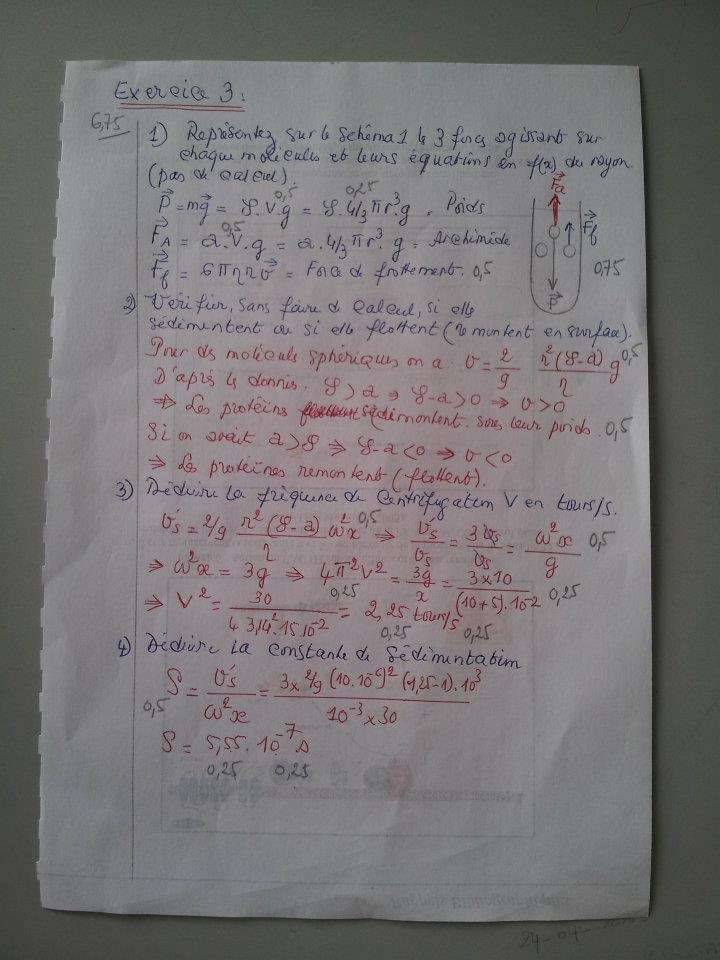 Exercice 3:
6,75
1) Représentez sur le schéma 1 le 3 forces agissant sur
chaque molécules et leurs équations en f(x) du rayon
(pas de calcul)
P = mg = ρ.V.g = ρ.4/3 πr³.g = Poids
0,5 0,25
F_A = a.V.g = a.4/3 πr³.g = Archimide
0,5
F_f = 6πηrv = Force de frottement. 0,5
F_a
F_f
P
0,75
2) Vérifier, sans faire de calcul, si elle
sédimentent ou si elle flottent (remontent en surface).
Pour des molécule sphériques on a: v = 2/9 r²(ρ-a)/η g 0,5
D'après le donnés: ρ > a ⇒ ρ-a > 0 ⇒ v > 0
⇒ Les protéins sédimentent sous leur poids. 0,5
Si on avait a > ρ ⇒ ρ-a < 0 ⇒ v < 0
⇒ Les protéines remontent (flottent).
3) Déduire la fréquence de centrifugation V en tours/s.
v's = 2/9 r²(ρ-a)/η ω²x 0,5 ⇒ v's/vs = 3vs/vs = ω²x/g 0,5
⇒ ω²x = 3g ⇒ 4π²V² = 3g/x = 3×10/(10+5).10⁻² 0,25
0,25
⇒ V² = 30/4 3,14².15.10⁻² = 2,25 tours/s
0,25 0,25
4) Déduire la constante de sédimentation
S = v's/ω²x = 3×2/9 (10.10⁻⁶)² (1,25-1).10³/10⁻³×30
0,5
S = 5,55.10⁻⁷ s
0,25 0,25